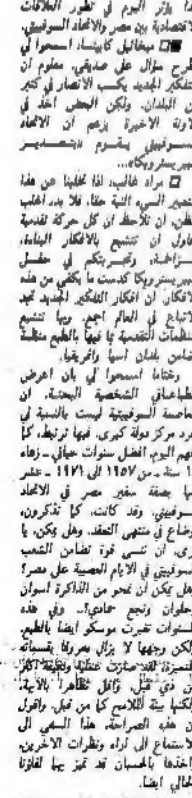 هذا يؤثر اليوم في تطور العلاقات
الاقتصادية بين مصر والاتحاد السوفييتي.
ميخائيل كابيتسا: اسمحوا لي
طرح سؤال على صديقي. معلوم ان
التفكير الجديد يكسب الانصار في كثير
من البلدان. ولكن البعض اخذ في
الآونة الاخيرة يزعم ان الاتحاد
السوفييتي يقوم «بتصدير
البيريسترويكا»...
مراد غالب: اذا تخلينا عن هذا
التعبير السيء النية حقا، فلا بد، اغلب
الظن، ان نلاحظ ان كل حركة تقدمية
تحاول ان تتشبع بالافكار البناءة،
وتجربتكم في حقل
البيريسترويكا كدست ما يكفي من هذه
الافكار. ان افكار التفكير الجديد تجد
الاتباع في العالم اجمع. وبها تتشبع
المنظمات التقدمية بما فيها بالطبع منظمة
تضامن بلدان آسيا وافريقيا.
وختاما اسمحوا لي بان اعرض
انطباعاتي الشخصية البحتة. ان
العاصمة السوفييتية ليست بالنسبة لي
مجرد مركز دولة كبرى. فبها ترتبط، كما
افهم اليوم، افضل سنوات حياتي - زهاء
١٠ سنة - من ١٩٥٧ الى ١٩٧١ -
بصفة سفير مصر في الاتحاد
السوفييتي. وقد كانت، كما تذكرون،
اوضاع في منتهى التعقد. وهل يمكن، يا
ترى، ان ننسى قوة تضامن الشعب
السوفييتي في الايام العصيبة على مصر؟
وهل يمكن ان نمحو من الذاكرة اسوان
وحلوان ونجع حمادي!.. وفي هذه
السنوات تغيرت موسكو ايضا بالطبع.
لكن وجهها لا يزال معروفا بقسماته
من ذي قبل، واقل تظاهرا بالابهة.
لكنها بينة الملامح كما من قبل. واقول
ان هذه الصراحة، هذا السعي الى
الاستماع الى آراء ونظرات الآخرين،
واخذها بالحسبان قد تميز بها لقاؤنا
الحالي ايضا.